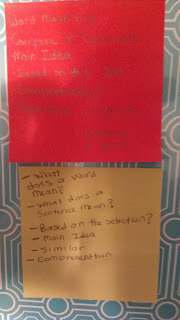 Word Meaning
Compare + Contrast
Main Idea
Based on the
Comprehension
- What
does a word
mean?
- What does a
Sentence Mean?
- Based on the selection?
- Main Idea
- Similar
- Comprehension